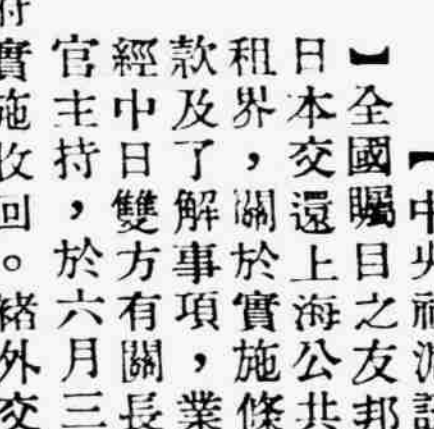 【中央社
】全國矚目之友邦
日本交還上海公共
租界，關於實施條
款及了解事項，業
經中日雙方有關長
官主持，於六月三
實施收回。褚外交